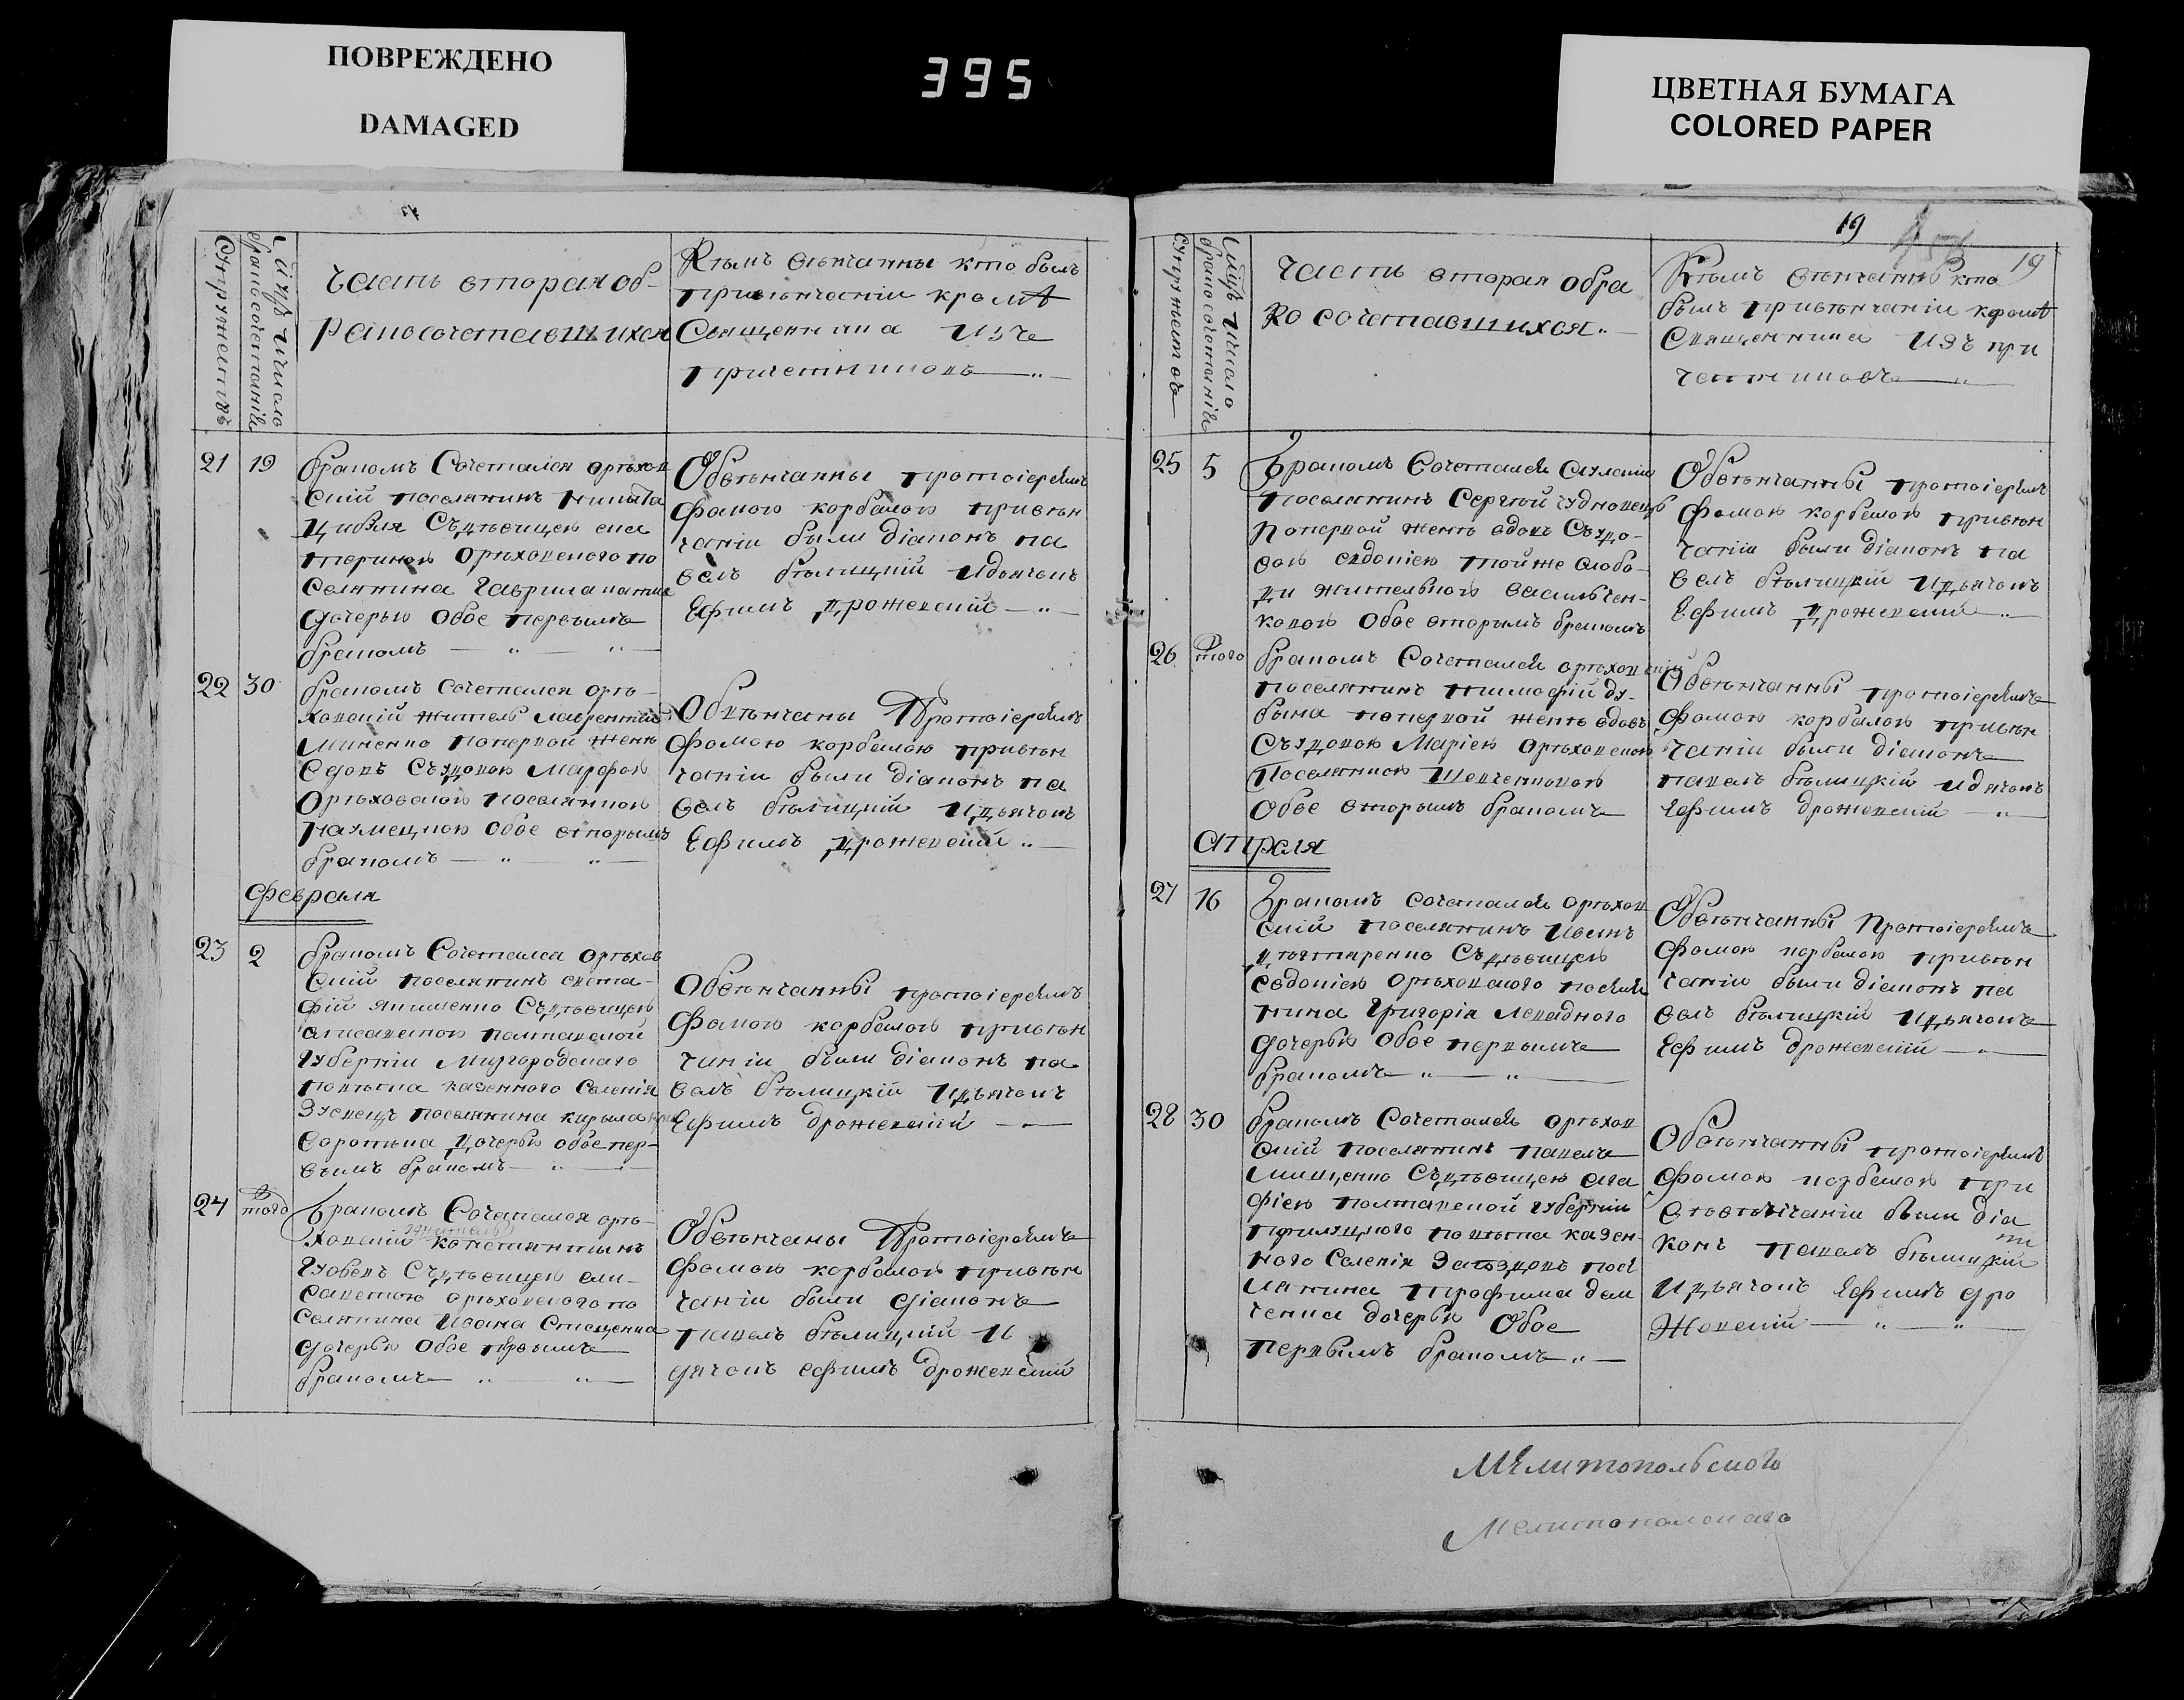 ПОВРЕЖДЕНО
DAMAGED
395
ЦВЕТНАЯ БУМАГА
COLORED PAPER
Супружествъ
число
бракосочетаній
Часть вторая о б-
ракосочетавшихся
Кѣмъ вѣнчанны кто былъ
при вѣнчаніи кромѣ
Священника изъ
причетниковъ
21 19
бракомъ Сочетался орѣхов
скій поселянинъ Никита
Съ дѣвицею ека
териною Орѣховского по
селянина Гаврила
дочерью Обое первымъ
бракомъ
Обвѣнчанны протоіереемъ
фомою корбалою при вѣн
чаніи были діаконъ па
велъ бѣлицкій и дьячокъ
Ефимъ дрожевскій
22 30
бракомъ сочетался орѣ-
ховскій житель лаврентій
Миненко по первой женѣ
вдовъ Съ вдовою Марфою
Орѣховскою поселянкою
обое вторымъ
бракомъ
Обвѣнчаны Протоіереемъ
фомою корбалою при вѣн
чаніи были діаконъ па
велъ бѣлицкій и дьячокъ
Ефимъ дрожевскій
февраля
23 2
бракомъ Сочетался орѣхов
скій поселянинъ евста-
фій якименко Съ дѣвицею
полтавской
губерніи Миргородского
повѣта казенного Селенія
Зуевецъ поселянина кирыла
дочерью обое пер-
вымъ бракомъ
Обвѣнчанны протоіереемъ
фомою корбалою при вѣн
чаніи были діаконъ па
велъ бѣлицкій и дьячокъ
Ефимъ дрожевскій
24 того
бракомъ Сочетался орѣ-
ховскій житель константинъ
Съ дѣвицею ели-
саветою орѣховского по
селянина Ивана
дочерью Обое первымъ
бракомъ
Обвѣнчаны Протоіереемъ
фомою корбалою при вѣн
чаніи были діаконъ
павелъ бѣлицкій и
дячокъ ефимъ дрожевскій
19
19
Супружествъ
число
бракосочетаній
Часть вторая о бра
косочетавшихся
Кѣмъ вѣнчанны кто
былъ при вѣнчаніи кромѣ
Священника изъ при
четниковъ
25 5
Бракомъ Сочетался
поселянинъ Сергѣй
по первой женѣ вдовъ Съ вдо-
вою евдокіею той же слобо-
ды жителькою васильчен-
ковою Обое вторымъ бракомъ
Обвѣнчанны протоіереемъ
фомою корбалою при вѣн
чаніи были діаконъ па
велъ бѣлицкій и дьячокъ
Ефимъ дрожевскій
26 того
бракомъ Сочетался орѣховскій
поселянинъ тимофій ду-
бына по первой женѣ вдовъ
Съ вдовою Маріею орѣховскою
Поселянкою Шевченковою
Обое вторымъ бракомъ
Обвѣнчанны протоіереемъ
фомою корбалою при вѣн
чаніи были діаконъ
павелъ бѣлицкій и дячокъ
Ефимъ дрожевскій
апреля
27 16
Бракомъ сочетался орѣхов
скій поселянинъ Иванъ
дѣгтяренко Съ дѣвицею
евдокіею Орѣховского поселя
нина Григорія
дочерью Обое первымъ
бракомъ
Обвѣнчанны Протоіереемъ
фомою корбалою при вѣн
чаніи были діаконъ па
велъ бѣлицкій и дьячокъ
Ефимъ дрожевскій
28 30
бракомъ Сочетался орѣхов
скій поселянинъ павелъ
Мищенко Съ дѣвицею ага
фіею полтавской губерніи
прилуцкого повѣта казен-
ного Селенія посе
лянина трофима дем
ченка дочерью Обое
первымъ бракомъ
Обвѣнчанны протоіереемъ
фомою корбалою при
были діа
конъ павелъ бѣлицкій
и дьячокъ Ефимъ дро
жевскій
Мелитопольского
Мелитопольского